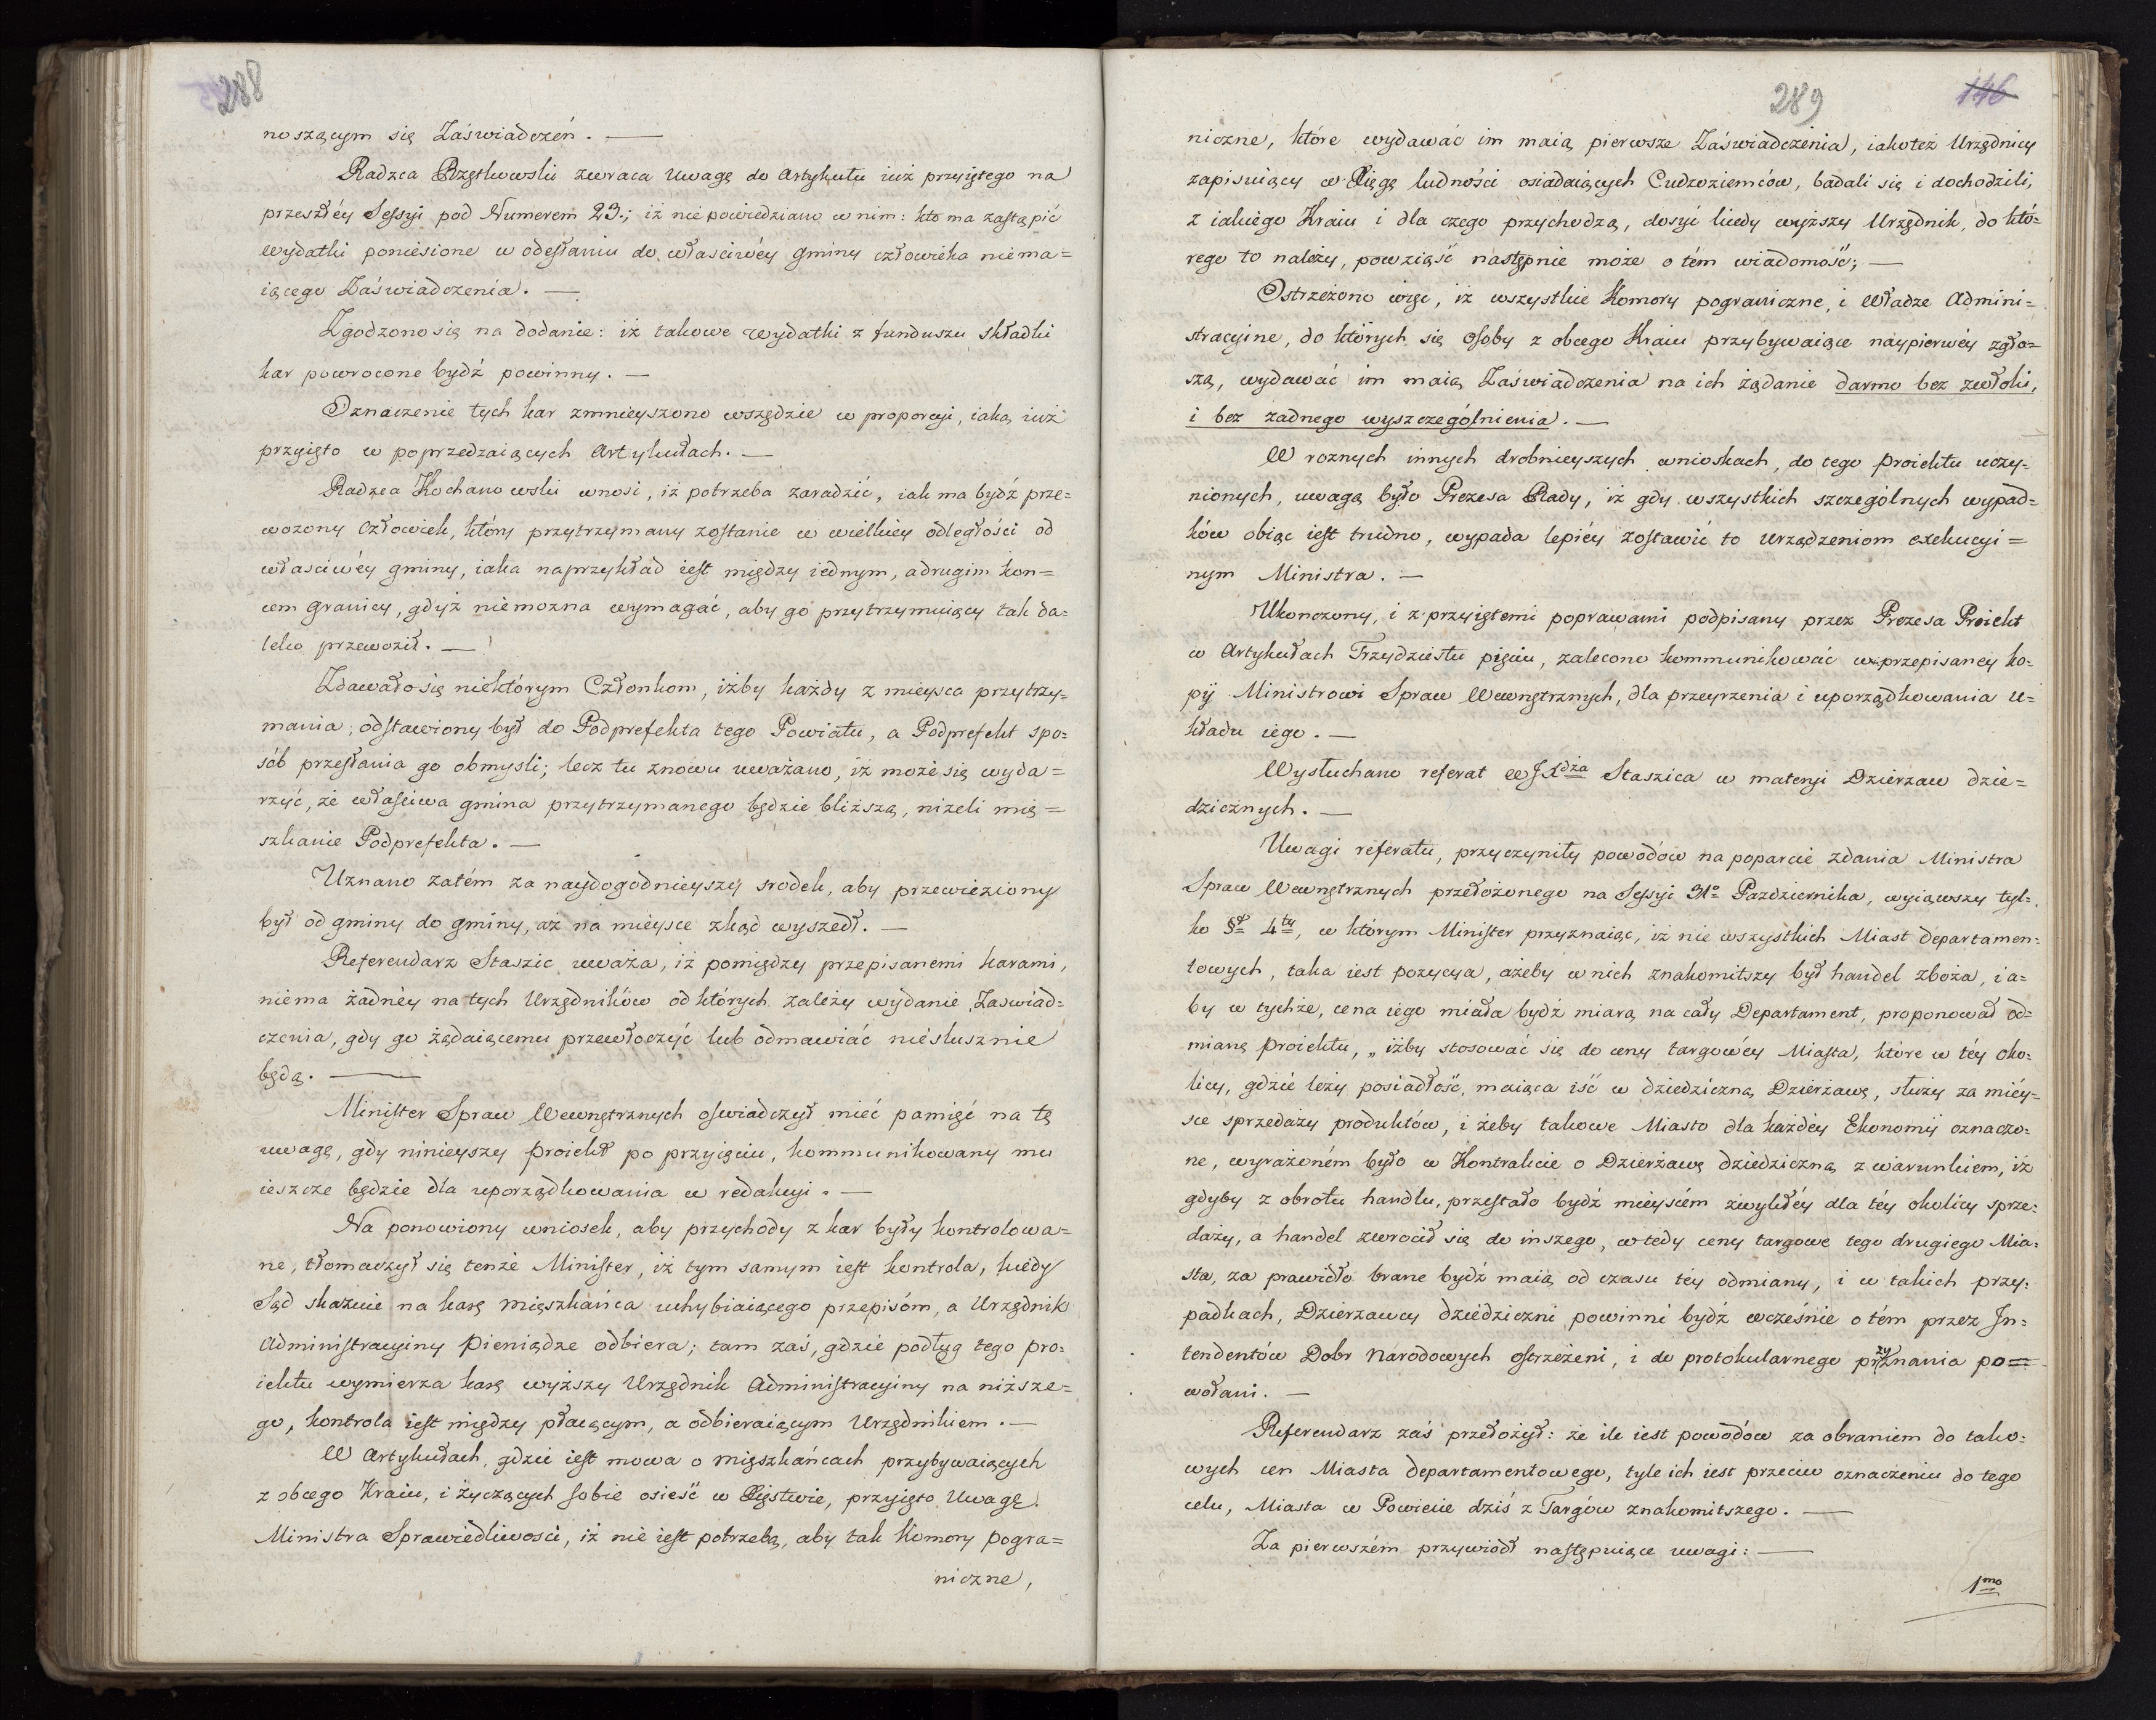 288
noszącym się Zaświadczeń. —
Radzca Rzętkowski zwraca uwagę do Artykułu iuż przyiętego na
przeszłéy Sessyi pod Numerem 23.; iż nie powiedziano w nim: kto ma zastąpić
wydatki poniesione w odesłaniu do właściwéy gminy człowieka niema=
iącego Zaświadczenia. —
Zgodzono się na dodanie: iż takowe wydatki z funduszu składki
kar powrocone bydź powinny. —
Oznaczenie tych kar zmnieyszono wszędzie w proporcyi, iaką iuż
przyięto w poprzedzaiących Artykułach. —
Radzca Kochanowski wnosi, iż potrzeba zaradzić, iak ma bydź prze=
wozony człowiek, który przytrzymany zostanie w wielkiey odległości od
właściwéy gminy, iaka naprzykład iest między iednym, a drugim koń=
cem granicy, gdyż niemozna wymagać, aby go przytrzymuiący tak da=
leko przewoził. —
Zdawało się niektórym Członkom, iżby każdy z mieysca przytrzy=
mania, odstawiony był do Podprefekta tego Powiatu, a Podprefekt spo=
sób przesłania go obmysli; lecz tu znowu uważano, iż może się wyda=
rzyć, że właściwa gmina przytrzymanego będzie bliższą, niżeli mię=
szkanie Podprefekta. —
Uznano zatém za naydogodnieyszy srodek, aby przewieziony
był od gminy do gminy, aż na mieysce zkąd wyszedł. —
Referendarz Staszic uważa, iż pomiędzy przepisanemi karami,
niema żadnéy na tych Urzędników od których zależy wydanie Zaswiad=
czenia, gdy go żądaiącemu przewłoczyć lub odmawiać niesłusznie
będą. —
Minister Spraw Wewnętrznych oswiadczył mieć pamięć na tę
uwagę, gdy ninieyszy proiekt po przyięciu, kommunikowany mu
ieszcze będzie dla uporządkowania w redakcyi. —
Na ponowiony wniosek, aby przychody z kar były kontrolowa=
ne, tłomaczył się tenże Minister, iż tym samym iest kontrola, kiedy
Sąd skazuie na karę mięszkańca uchybiaiącego przepisóm, a Urzędnik
Administracyiny pieniądze odbiera; tam zaś, gdzie podług tego pro=
iektu wymierza karę wyższy Urzędnik Administracyiny na niższe=
go, kontrola iest między płacącym, a odbieraiącym Urzędnikiem. —
W Artykułach, gdzie iest mowa o mięszkańcach przybywaiących
z obcego Kraiu, i życzących sobie osieść w Xięstwie, przyięto Uwagę
Ministra Sprawiedliwosci, iż nie iest potrzebą, aby tak Komory pogra=
niczne,
289
146
niczne, które wydawać im maią pierwsze Zaświadczenia, iakoteż Urzędnicy
zapisuiący w Xięgę ludności osiadaiących Cudzoziemców, badali się i dochodzili,
z iakiego Kraiu i dla czego przychodzą, dosyć kiedy wyższy Urzędnik, do któ=
rego to należy, powziąść następnie może o tém wiadomość; —
Ostrzeżono więc, iż wszystkie Komory pograniczne, i Władze Admini=
stracyine, do których się osoby z obcego Kraiu przybywaiące naypierwéy zgło=
szą, wydawać im maią Zaświadczenia na ich żądanie darmo bez zwłoki,
i bez zadnego wyszczególnienia. —
W roznych innych drobnieyszych wnioskach, do tego proiektu uczy=
nionych, uwagą było Prezesa Rady, iż gdy wszystkich szczególnych wypad=
ków obiąc iest trudno, wypada lepiéy zostawić to urządzeniom exekucyi=
nym Ministra. —
Ukonczony, i z przyiętemi poprawami podpisany przez Prezesa Proiekt
w Artykułach Trzydziestu pięciu, zalecono kommunikować w przepisaney ko=
pij Ministrowi Spraw Wewnętrznych, dla przeyrzenia i uporządkowania u=
kładu iego. —
Wysłuchano referat WJXdza Staszica w materyi Dzierżaw dzie=
dzicznych. —
Uwagi referatu, przyczyniły powodów na poparcie zdania Ministra
Spraw Wewnętrznych przełożonego na Sessyi 31º Pazdziernika, wyiąwszy tyl=
ko §fu 4ty, w którym Minister przyznaiąc, iż nie wszystkich Miast departamen=
towych, taka iest pozycya, ażeby w nich znakomitszy był handel zboża, i a=
by w tychże, cena iego miała bydź miarą na cały Departament, proponował od=
mianę proiektu, „iżby stosować się do ceny targowéy Miasta, które w téy oko=
licy, gdzie leży posiadłość, maiąca iść w dziedziczną Dzierżawę, służy za miéy=
sce sprzedaży produktów, i żeby takowe Miasto dla każdéy Ekonomij oznaczo=
ne, wyrażoném było w Kontrakcie o Dzierżawę dziedziczną z warunkiem, iż
gdyby z obrotu handlu, przestało bydź mieyscém zwykłéy dla téy okolicy sprze=
daży, a handel zwrocił się do inszego, wtedy ceny targowe tego drugiego Mia=
sta, za prawidło brane bydź maią od czasu téy odmiany, i w takich przy=
padkach, Dzierżawcy dziedziczni powinni bydź wcześnie o tém przez In=
tendentów Dobr Narodowych ostrzeżeni, i do protokularnego przyznania po=
wołani. —
Referendarz zaś przełożył: że ile iest powodów za obraniem do tako=
wych cen Miasta departamentowego, tyle ich iest przeciw oznaczeniu do tego
celu, Miasta w Powiecie dziś z Targów znakomitszego. —
Za pierwszém przywiódł następuiące uwagi: —
1mo